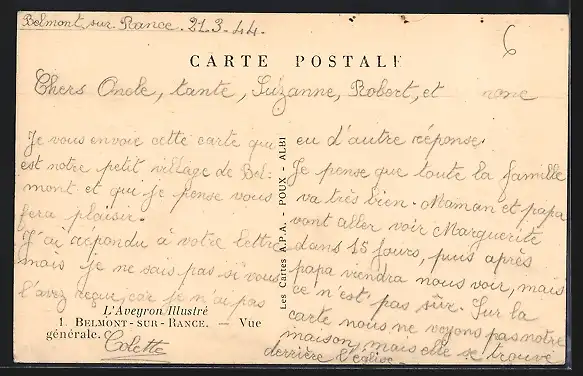 Belmont sur Rance. 21.3.44.
6
CARTE POSTALE
Chers Oncle, tante, Suzanne, Robert, et
Je vous envoie cette carte qui
est notre petit village de Bel-
mont et qui je pense vous
fera plaisir.
J'ai répondu à votre lettre
mais je ne sais pas si vous
l'avez reçue, car je n'ai pas
L'Aveyron Illustré
1. BELMONT-SUR-RANCE. — Vue
générale.
Colette
Les Cartes A.P.A. - POUX - ALBI
eu d'autre réponse.
Je pense que toute la famille
va très bien. Maman et papa
vont aller voir Marguerite
dans 15 jours, puis après
papa viendra nous voir, mais
ce n'est pas sûr. Sur la
carte nous ne voyons pas notre
maison, mais elle se trouve
derrière l'église.